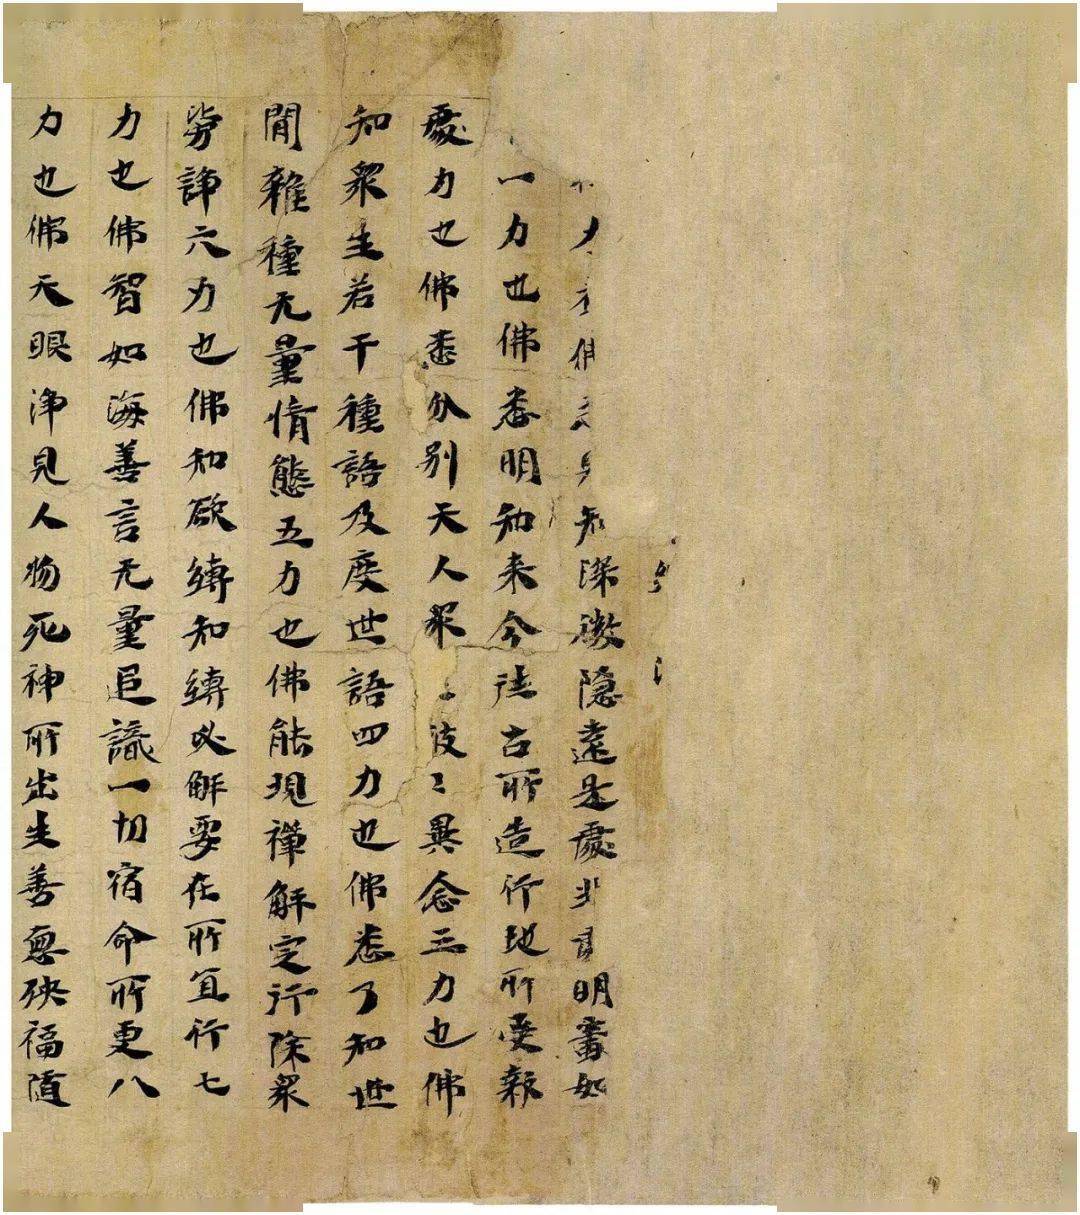 知深微隱遠是處非明審如
一力也佛悉明知来今往古所造行地所受報
處力也佛悉分別天人眾彼〻異念三力也佛
知眾生若干種語及度世語四力也佛悉了知世
間雜種无量情態五力也佛能現禪解定行除眾
勞諍六力也佛知欲縛知縛必解要在所宜行七
力也佛智如海善言无量追識一切宿命所更八
力也佛天眼淨見人物死神所出生善惡殃福隨